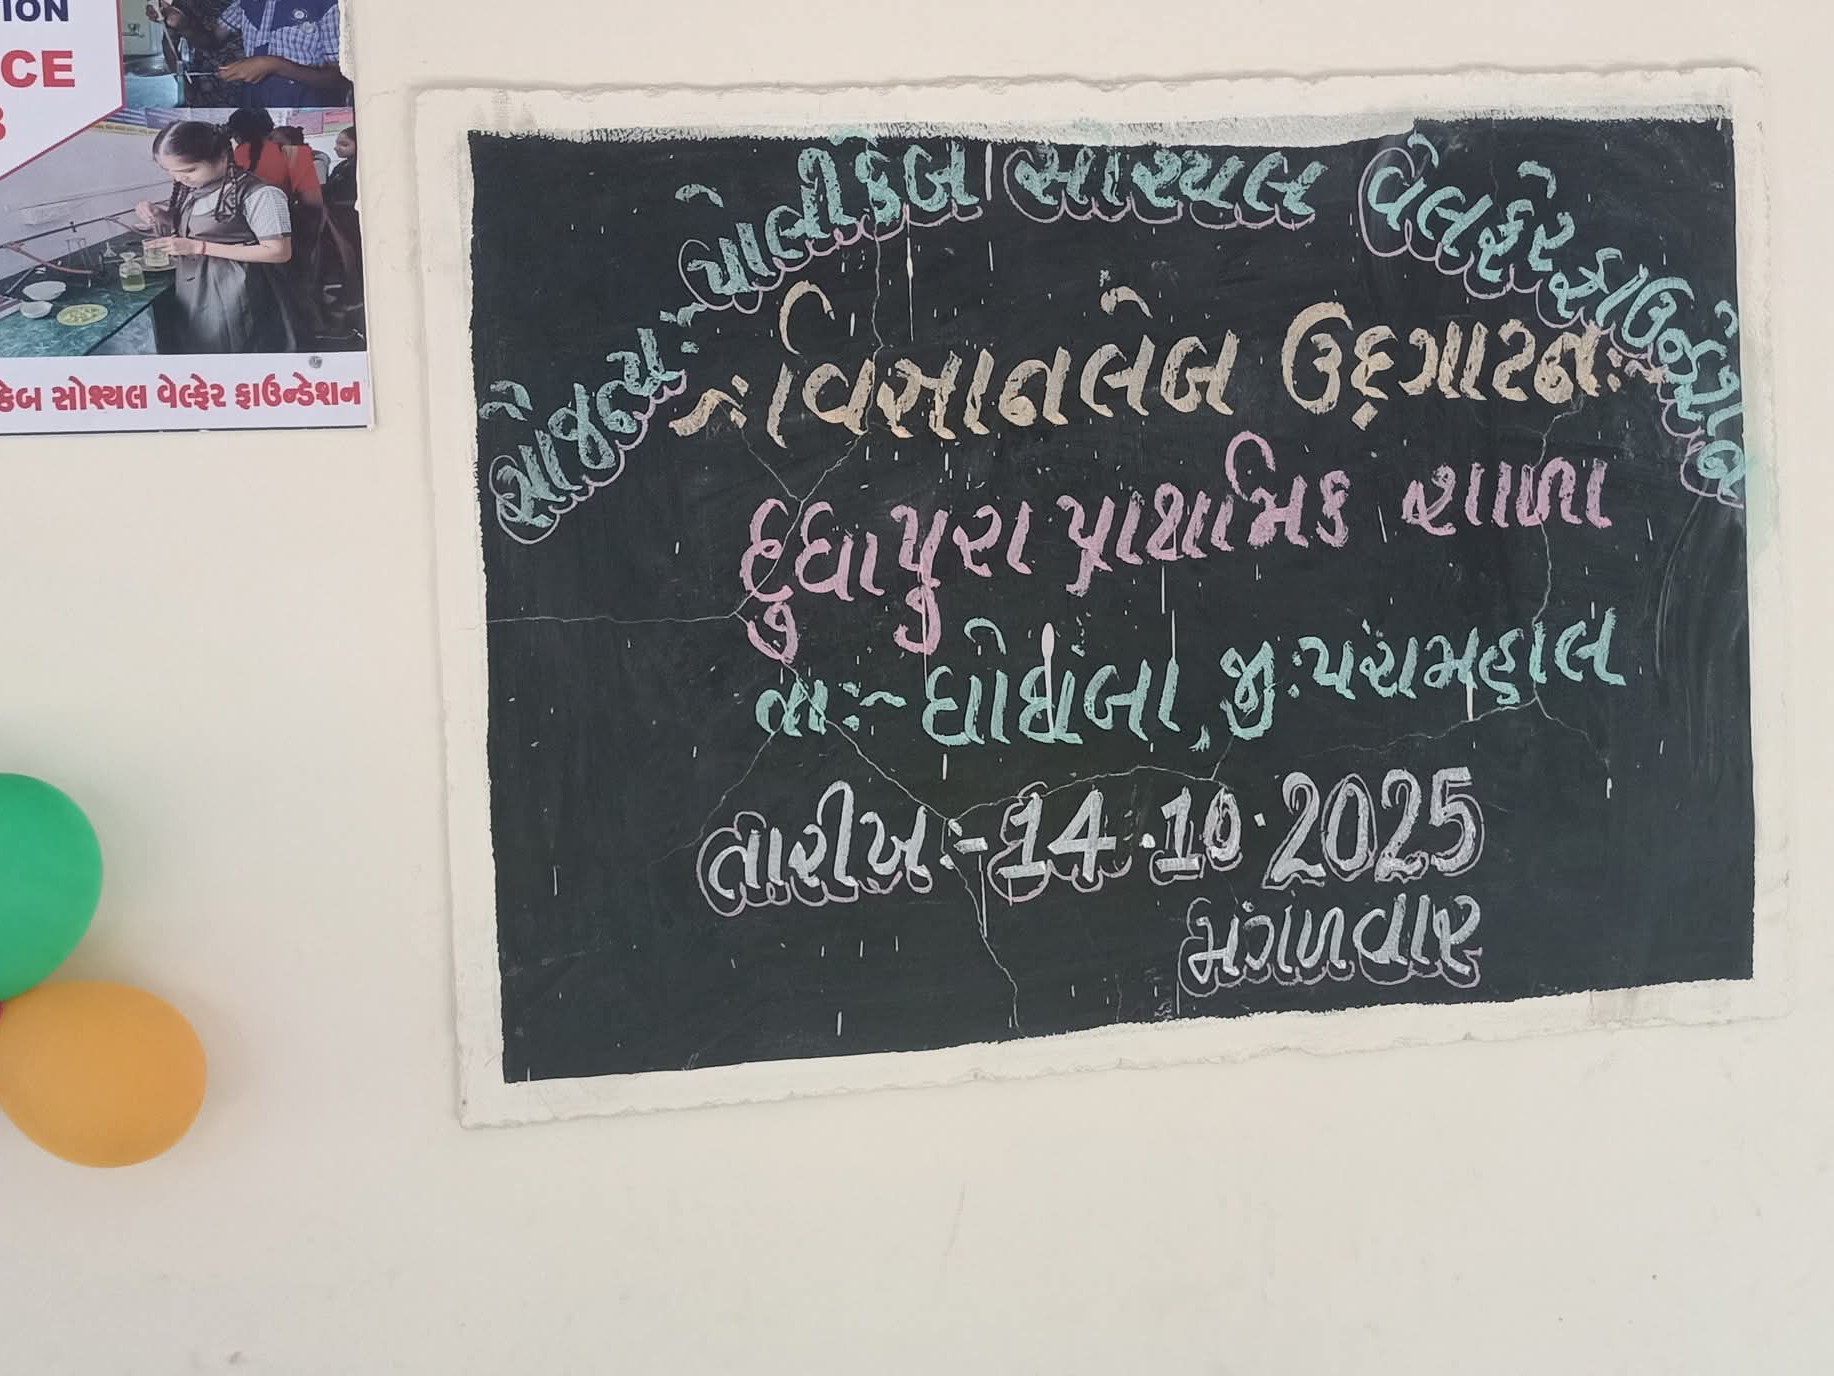 ION
CE
કેબ સોશ્યલ વેલ્ફેર ફાઉન્ડેશન
સૌજન્ય:- પોલીકેબ સોશ્યલ વેલ્ફેર ફાઉન્ડેશન
-: વિજ્ઞાનલેબ ઉદ્ગાટન:-
દુધાપુરા પ્રાથામિક શાળા
તા:- ઘોઘંબા, જી:પંચમહાલ
તારીખ:- 14.10.2025
મંગળવાર